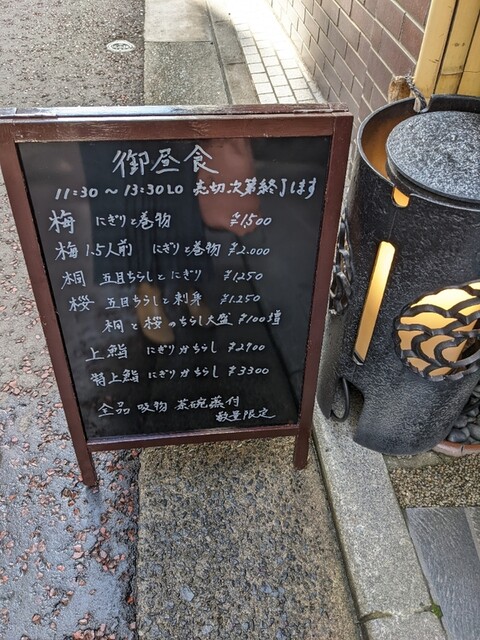 御昼食
11:30～13:30LO 売切次第終了します
梅 にぎりと巻物 ¥1,500
梅1.5人前 にぎりと巻物 ¥2,000
桐 五目ちらしとにぎり ¥1,250
桜 五目ちらしと刺身 ¥1,250
桐と桜のちらし大盛 ¥100増
上鮨 にぎりかちらし ¥2900
特上鮨 にぎりかちらし ¥3300
全品 吸物 茶碗蒸付
数量限定